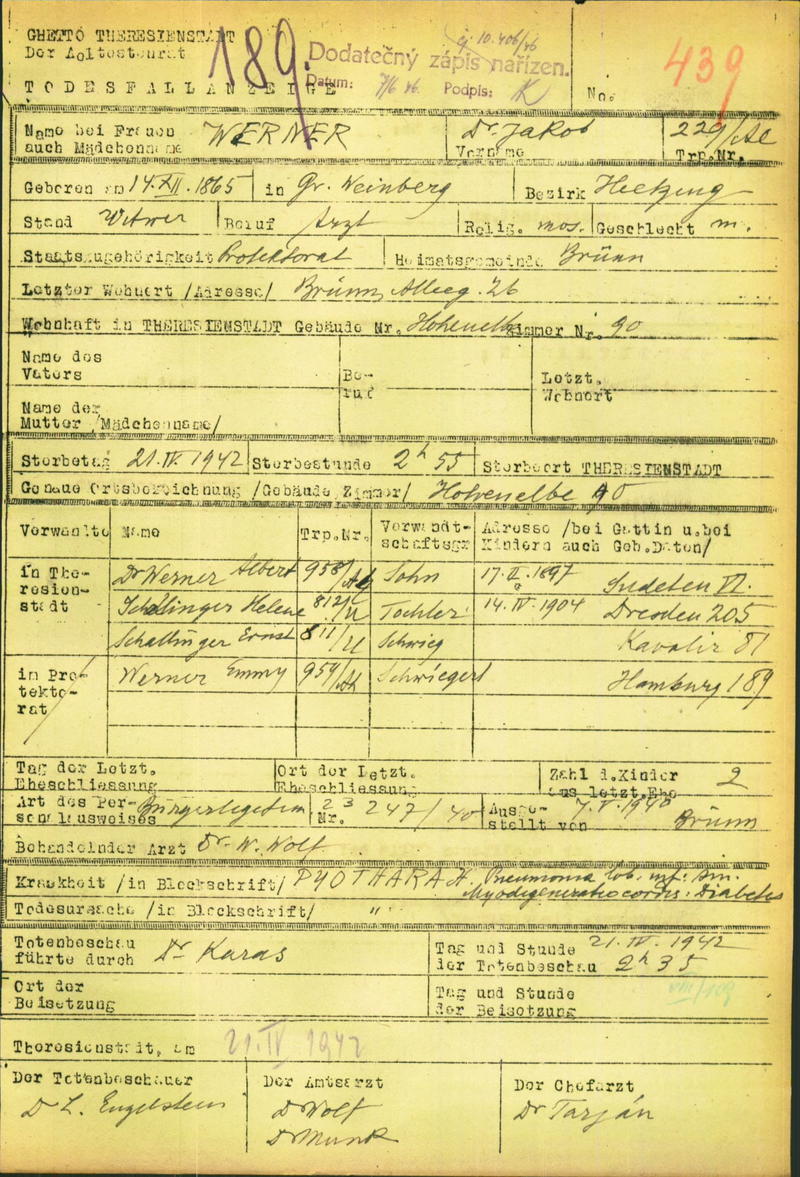 GHETTO THERESIENSTADT
Der Aeltestenrat
TODESFALLANZEIGE
189.
10.406/46
Dodatečný zápis nařízen.
Datum: 7/6 46. Podpis: K
No. 439
Name bei Frauen auch Mädchenname WERNER Dr. Jakob Vorname 229/Ae Trp.Nr.
Geboren am 14.XII.1865 in Gr. Weinberg Bezirk
Stand Witwer Beruf Arzt Relig. mos. Geschlecht m.
Staatszugehörigkeit Protektorat Heimatsgemeinde Brünn
Letzter Wohnort /Adresse/ Brünn, 26
Wohnhaft in THERESIENSTADT Gebäude Nr. Hohenelbe Zimmer Nr. 90
Name des Vaters Be-ruf Letzt. Wohnort
Name der Mutter /Mädchenname/
Sterbetag 21.IV.1942 Sterbestunde 2h 55 Sterbeort THERESIENSTADT
Genaue Ortsbezeichnung /Gebäude, Zimmer/ Hohenelbe 90
Verwandte Name Trp.Nr. Verwandt-schaftsgr. Adresse /bei Gattin u. bei Kindern auch Geb.Daten/
in The-resien-stadt Dr Werner Albert 958/ Sohn 17.II.1897 Sudeten VI.
Schallinger Helene 812/U Tochter 14.IV.1904 Dresden 205
Schallinger Ernst 811/U Schwieg Kavalir 81
in Pro-tekto-rat Werner Emmy 959/ Schwiegert Hamburg 189
Tag der Letzt. Eheschliessung Ort der Letzt. Eheschliessung Zahl d. Kinder aus letzt. Ehe 2
Art des Per-sonalausweises Bürgerlegitim Nr. 247/40 Ausge-stellt von 7.V.1940 Brünn
Behandelnder Arzt Dr. W. Wolf
Krankheit /in Blockschrift/ Pneumonia lob. inf. sin.
Myodegeneratio cordis. Diabetes
Todesursache /in Blockschrift/ "
Totenbeschau führte durch Dr Karas Tag und Stunde der Totenbeschau 21.IV.1942 2h 35
Ort der Beisetzung Tag und Stunde der Beisetzung
Theresienstadt, am 21.IV 1942
Der Totenbeschauer Der Amtsarzt Der Chefarzt
Dr L. Engelstein Dr Wolf Dr Tarján
Dr Munk